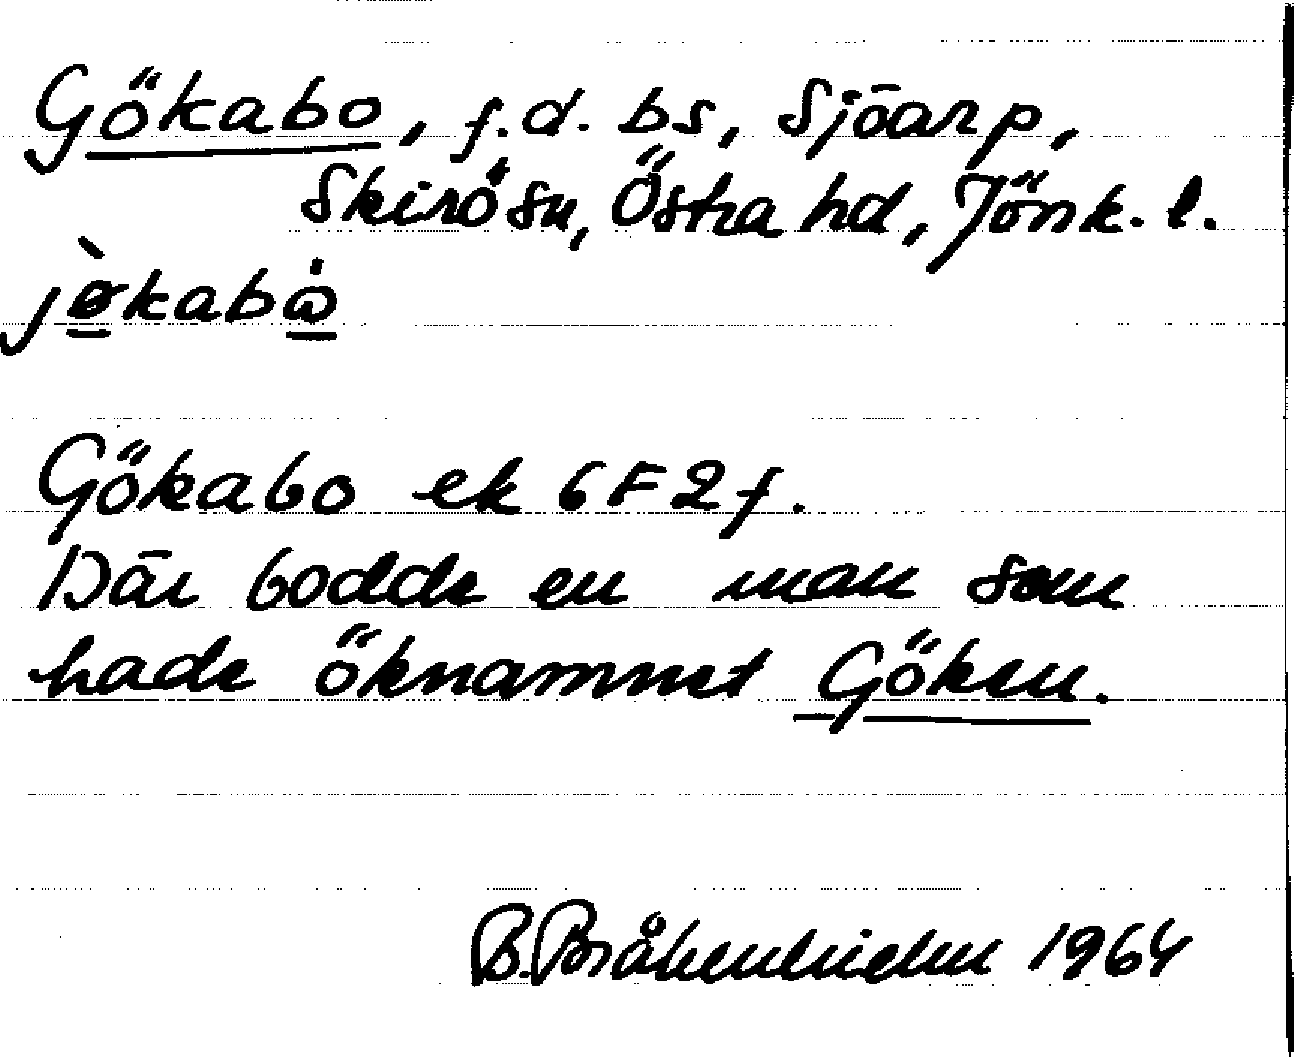 Gökabo, f.d. bs, Sjöarp,
Skirö sn, Östra hd, Jönk. l.
jø̀kabȯ
Gökabo ek 6F2f.
Där bodde en man som
hade öknamnet Göken.
B. Bråkenhielm 1964